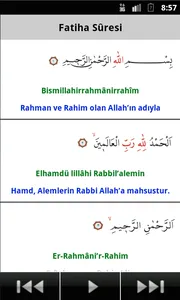 8:57
Fatiha Sûresi
بِسْمِ اللّٰهِ الرَّحْمٰنِ الرَّحِيمِ
Bismillahirrahmânirrahîm
Rahman ve Rahim olan Allah'ın adıyla
اَلْحَمْدُ لِلّٰهِ رَبِّ الْعَالَمِينَ
Elhamdü lillâhi Rabbil'alemin
Hamd, Alemlerin Rabbi Allah'a mahsustur.
اَلرَّحْمٰنِ الرَّحِيمِ
Er-Rahmâni'r-Rahim